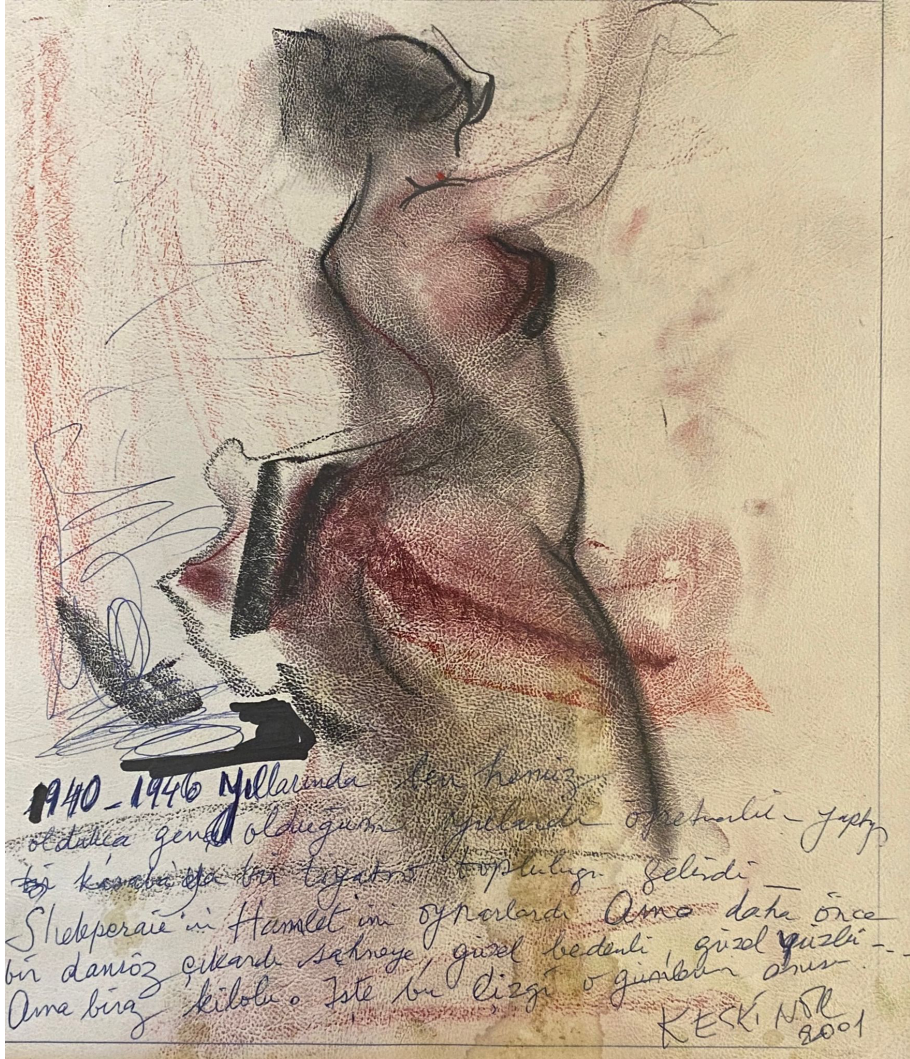 1940-1946 Yıllarında ben henüz
oldukça genç olduğum yıllarda öğretmenlik yaptığım
bir kasabaya bir tiyatro topluluğu gelirdi
Shekperaie'in Hamlet'ini oynarlardı Ama daha önce
bir dansöz çıkardı sahneye, güzel bedenli, güzel yüzlü--.
Ama biraz kilolu. İşte bu çizgi o günlerin anısı...
KESKİNOR
2001